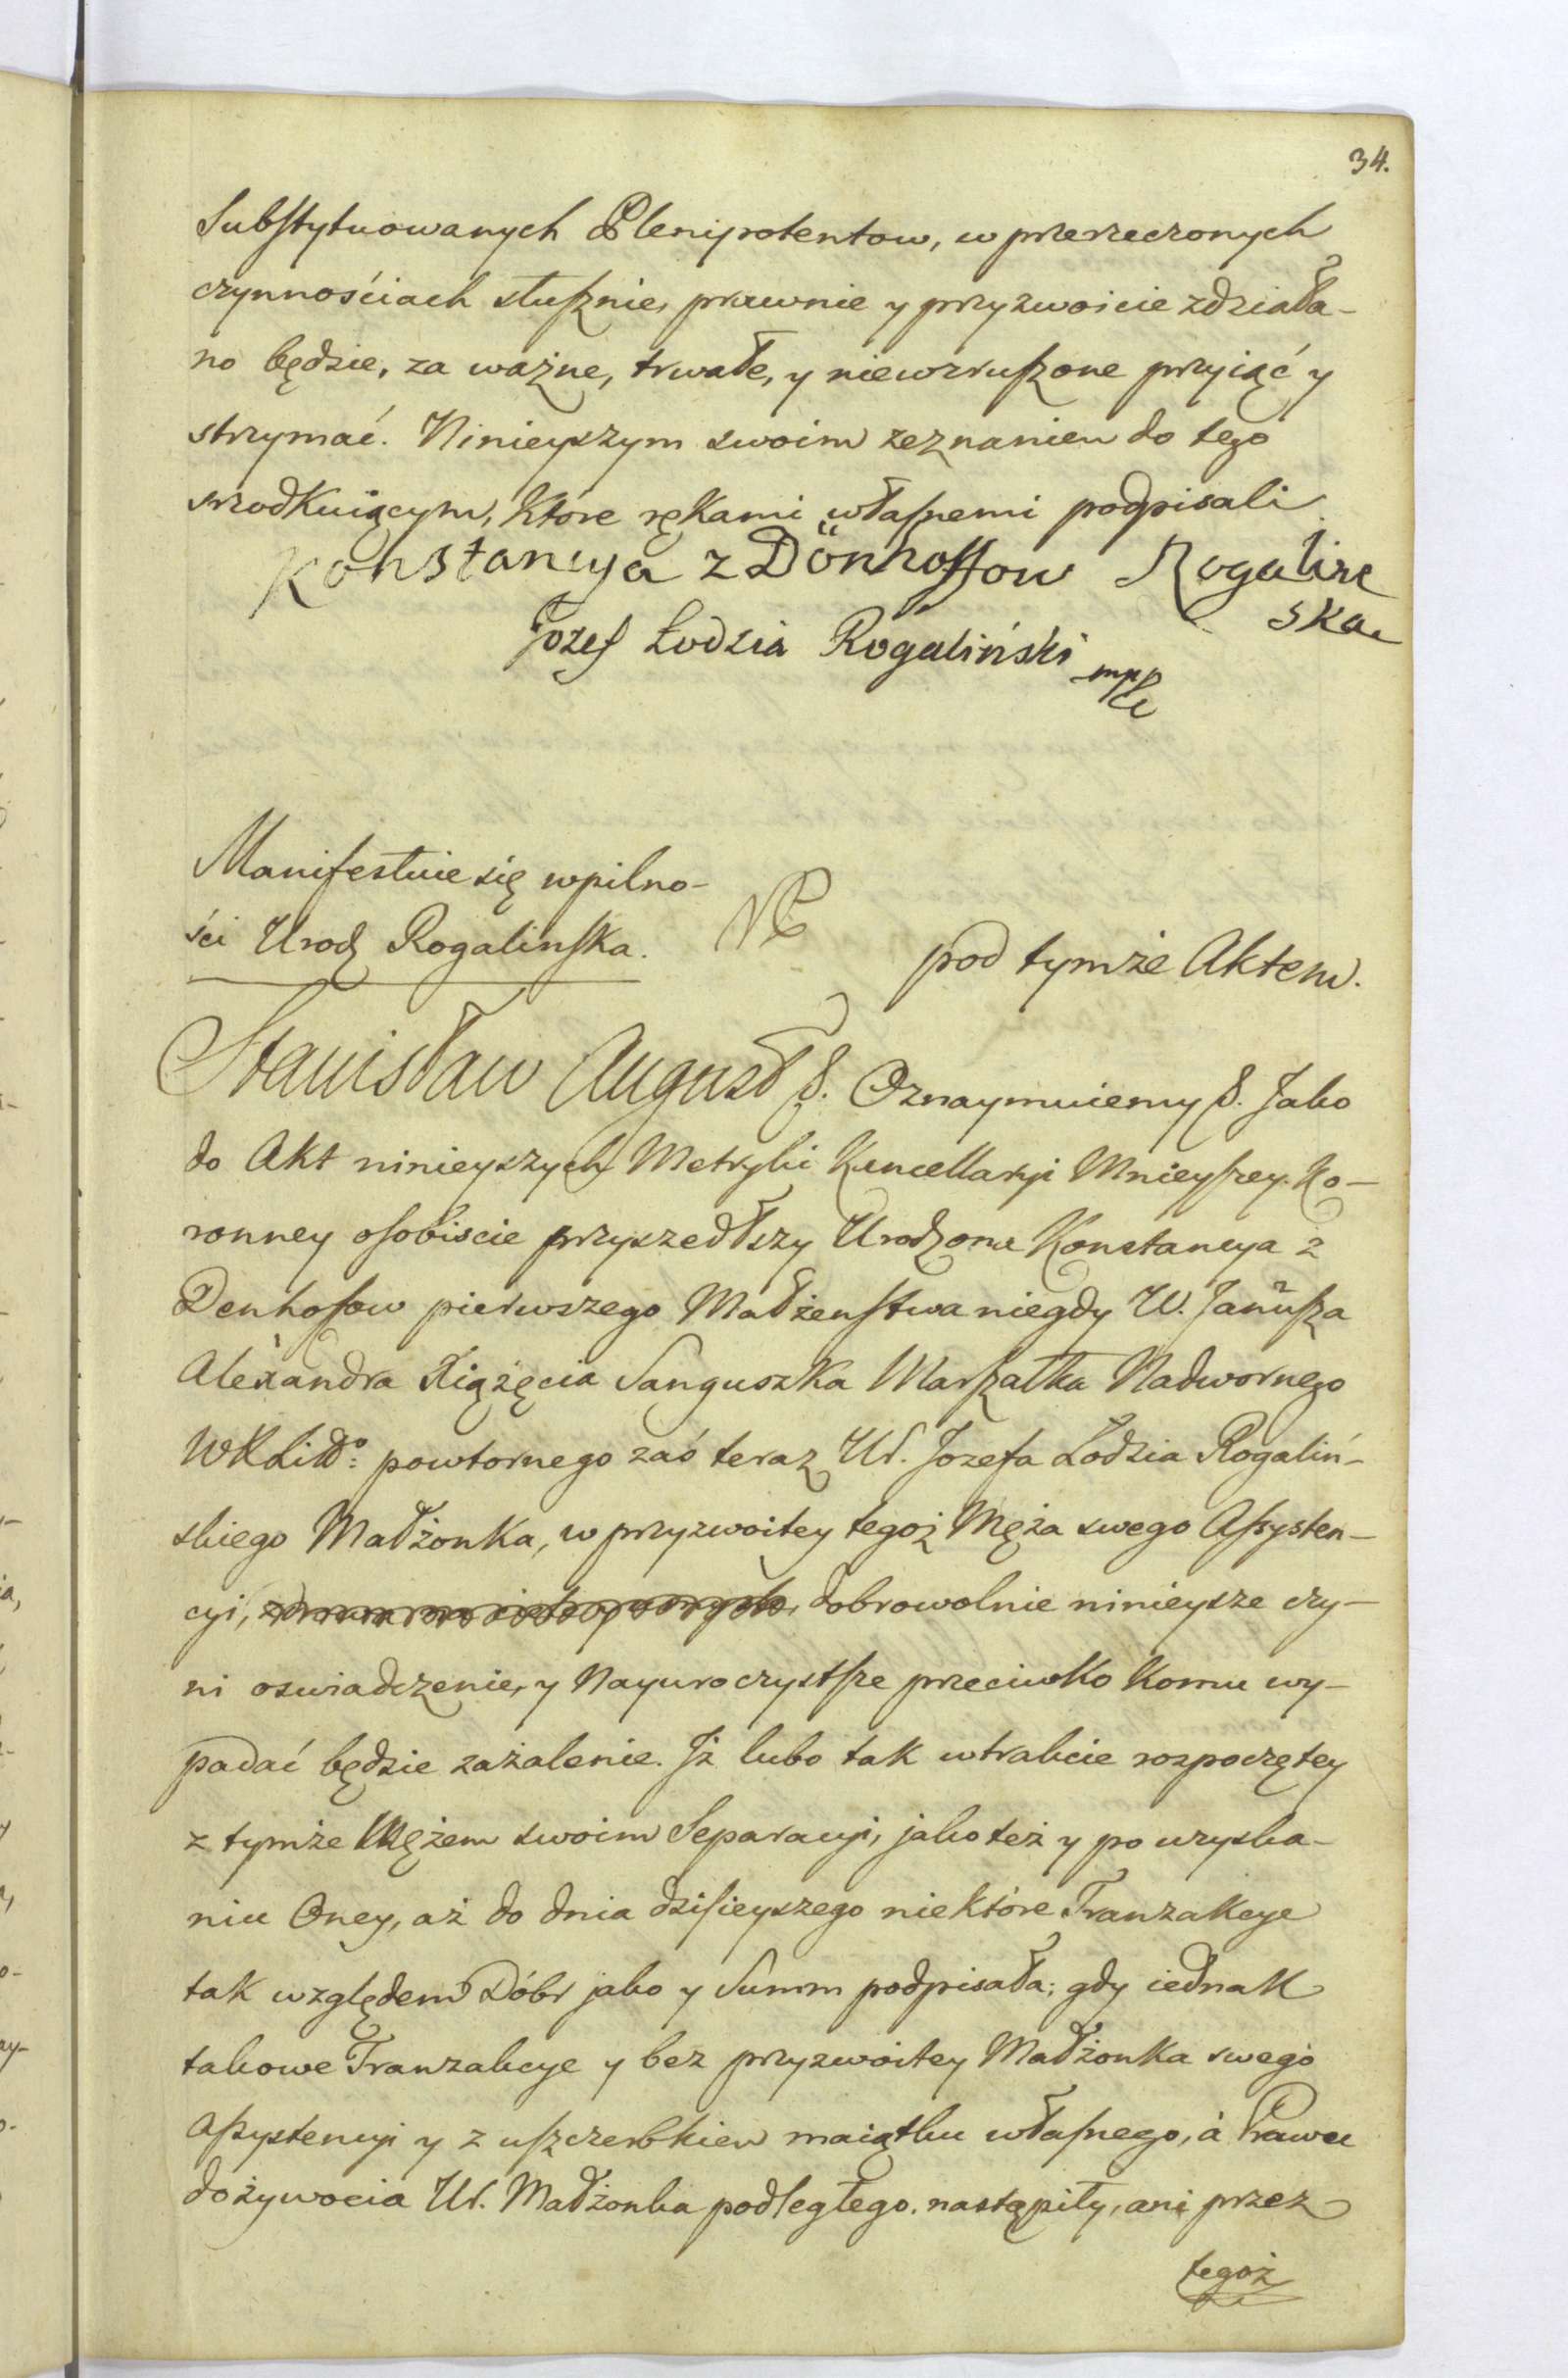 34.
Substytuowanych Plenipotentow, w przerzeczonych
czynnościach słusznie, prawnie y przyzwoicie zdziała-
no będzie, za ważne, trwałe, y niewzruszone przyiąć y
strzymać. Ninieyszym swoim zeznaniem do tego
srzodkuiącym, które rękami własnemi podpisali
Konstancya z Dönhoffow Rogalins
ska
Jozef Łodzia Rogaliński mpp
Manifestuie się w pilno-
ści Urodz Rogalinska.
pod tymże Aktem.
Stanisław August &. Oznaymuiemy &. Jako
do Akt ninieyszych Metryki Kancellaryi Mnieyszey Ko-
ronney osobiscie przyszedłszy Urodzona Konstancya z
Denhofow pierwszego Małżenstwa niegdy W. Janusza
Alexandra Xiążęcia Sanguszka Marszałka Nadwornego
WXLitto: powtornego zaś teraz Ur. Jozefa Łodzia Rogaliń-
skiego Małżonka, w przyzwoitey tegoż Męża swego Assysten-
cyi, dobrowolnie ninieysze czy-
ni oswiadczenie, y Nayuroczystsze przeciwko komu wy-
padać będzie zażalenie. Iż lubo tak w trakcie rozpoczętey
z tymże Mężem swoim Separacyi, jako też y po uzyska-
niu Oney, aż do dnia dzisieyszego niektóre Tranzakcye
tak względem Dóbr jako y Summ podpisała; gdy iednak
takowe Tranzakcye y bez przyzwoitey Małżonka swego
Assystencyi y z uszczerbkiem maiątku własnego, á Prawu
dożywocia Ur. Małżonka podległego. nastąpiły, ani przez
tegoż